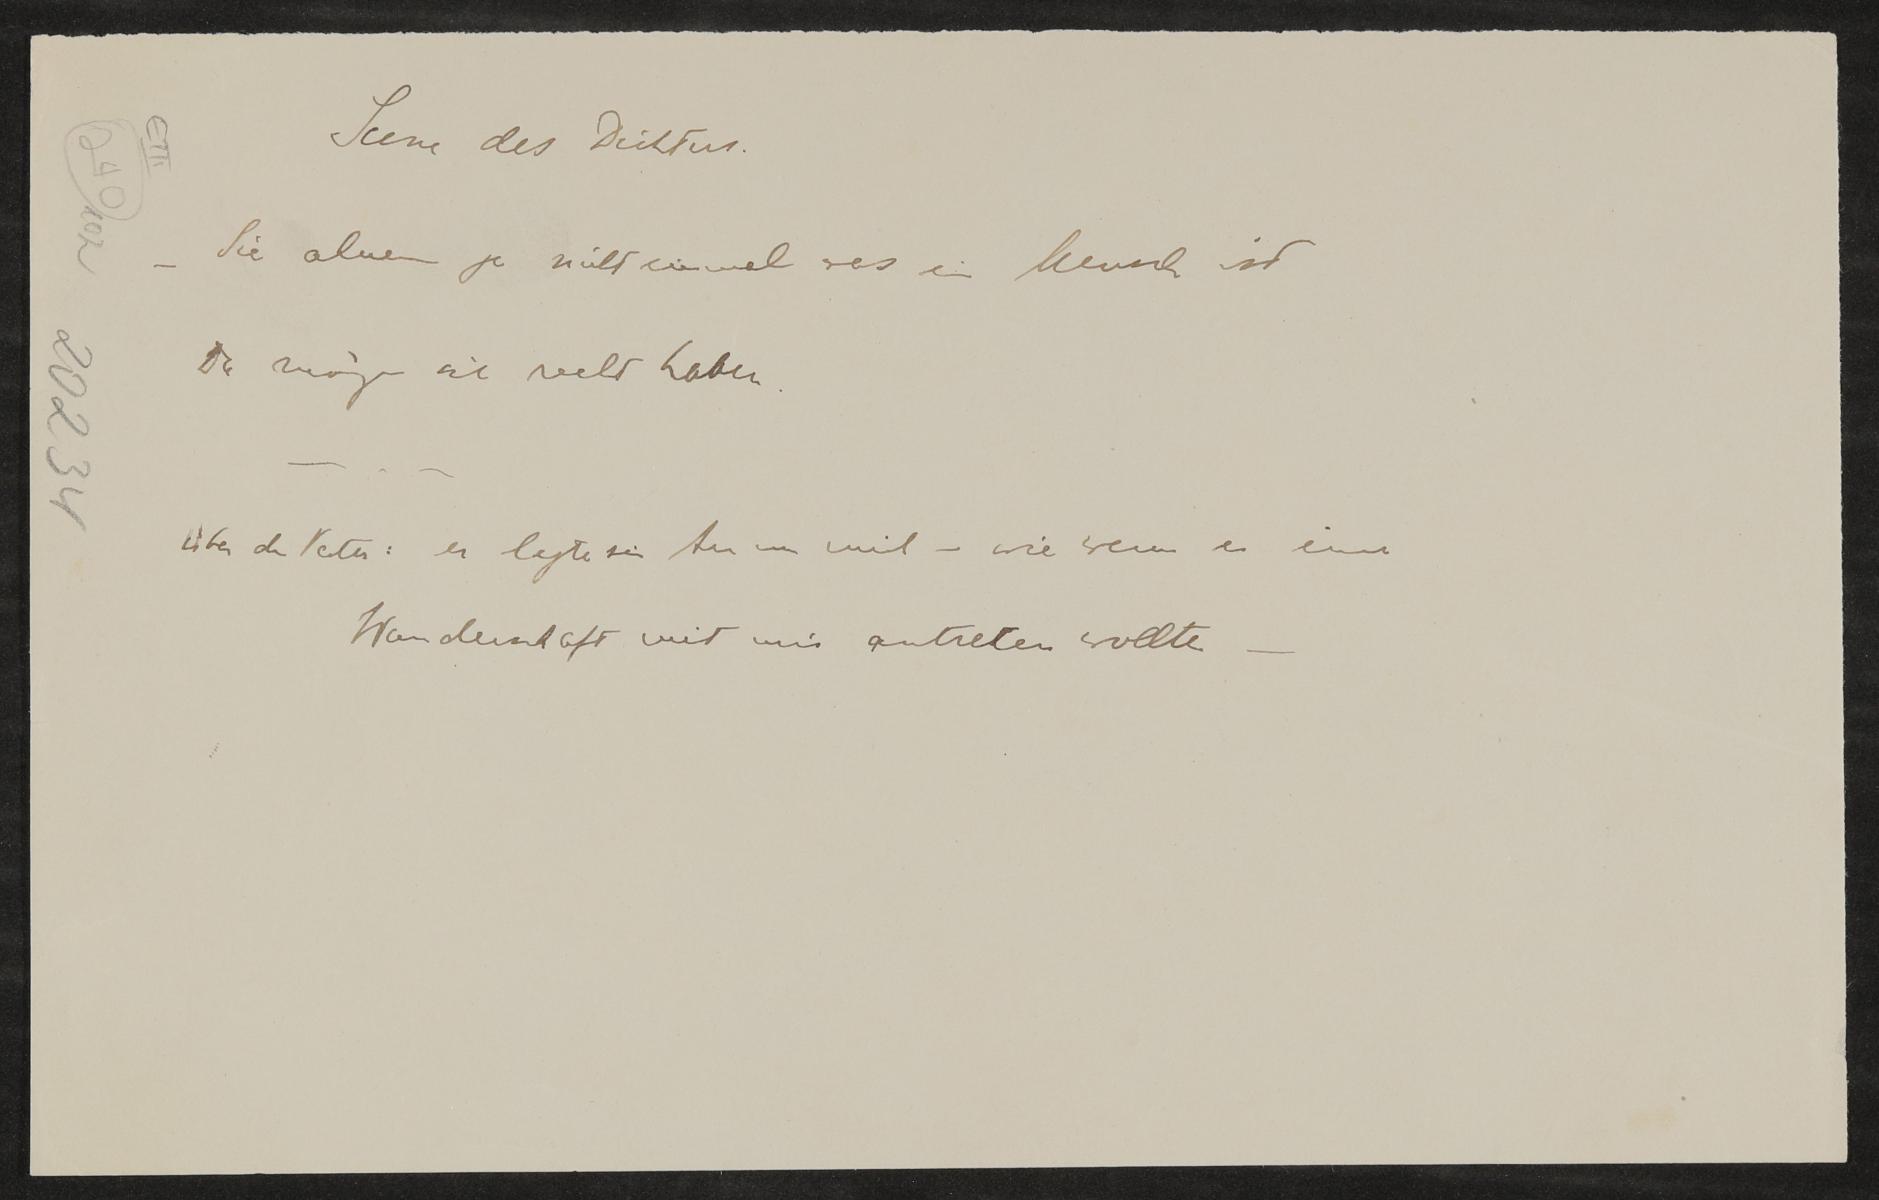 Scene des Dichters.
– Sie ahnen ja nicht einmal was ein Mensch ist
Da mögen sie recht haben.
— . —
über den Vater: er legte sein Arm um mich – wie wenn er eine
Wanderschaft mit mir antreten wollte —
E III
240
102
20234